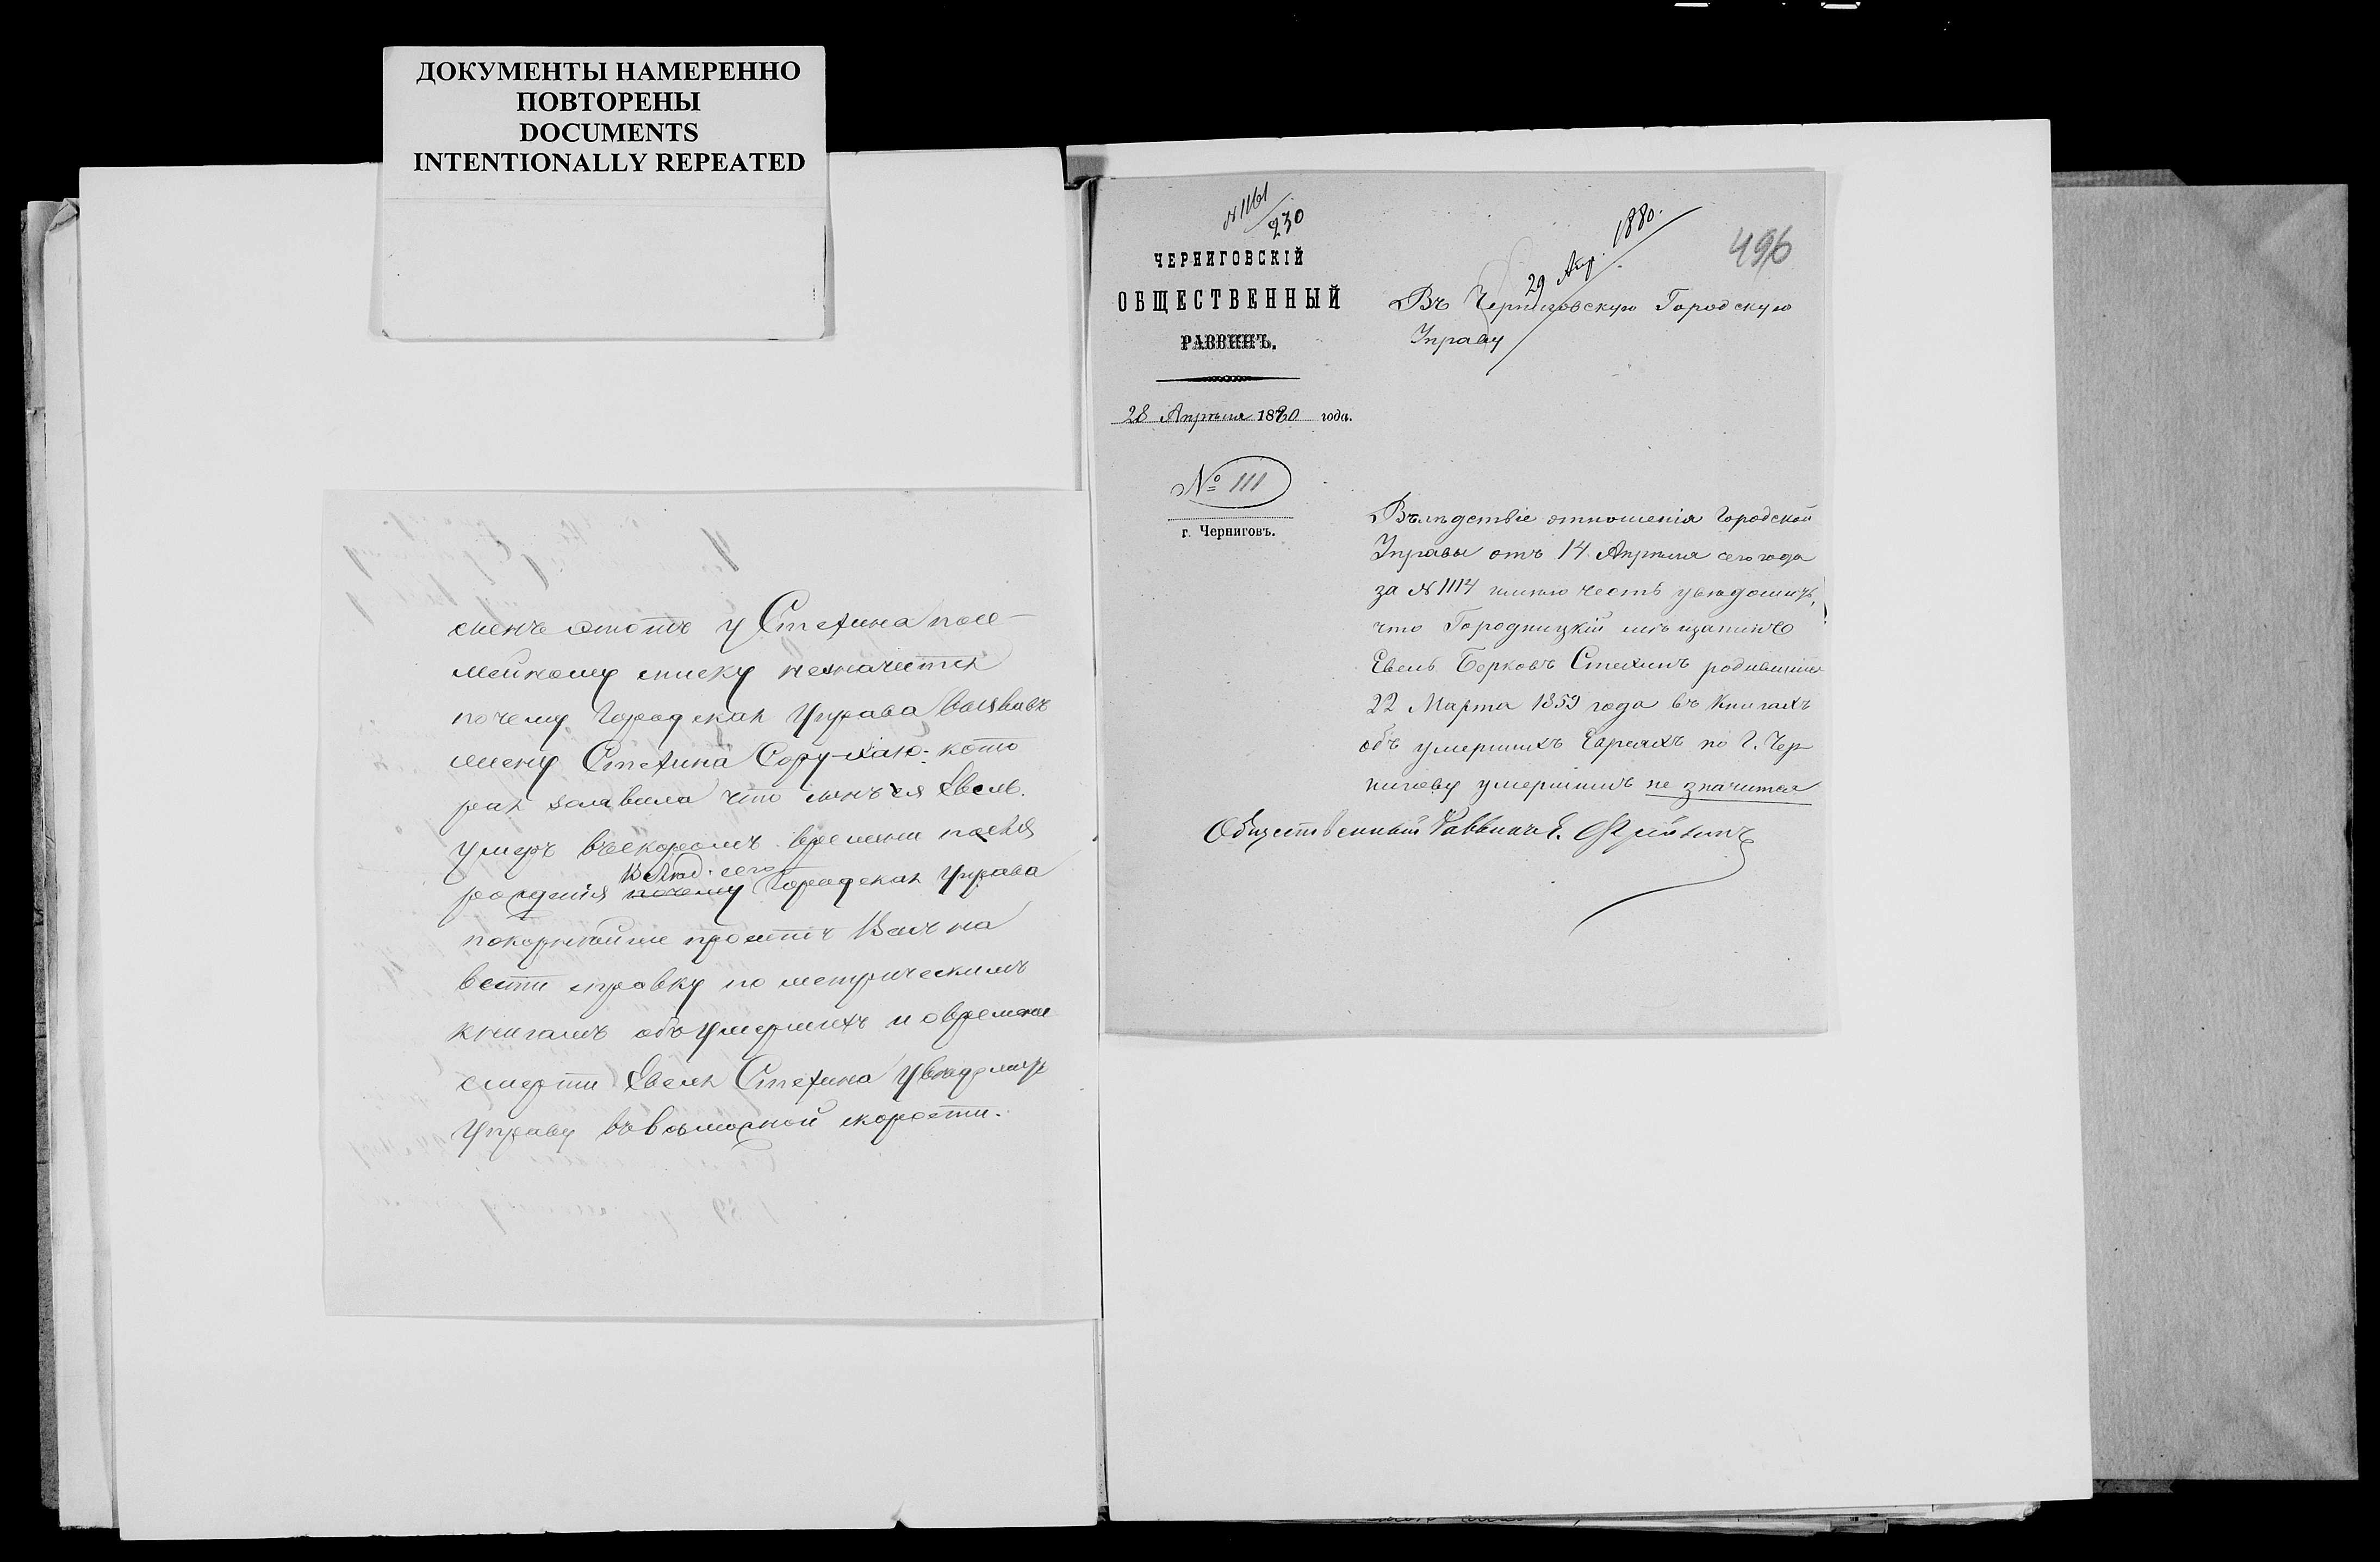 ДОКУМЕНТЫ НАМЕРЕННО
ПОВТОРЕНЫ
DOCUMENTS
INTENTIONALLY REPEATED
сынъ этотъ у Стехина посе-
мейному списку незначится
почему Городская Управа вызвавъ
жену Стехина Сору-Хаю: кото
рая заявила что сынъ ея Евель
умеръ въскоромъ времени после
рождения почему Городская Управа
Вслѣд. сего
покорнейше проситъ Васъ на
вести справку по метрическимъ
книгамъ объ умершихъ и овремени
смерти Евеля Стехина уведомить
Управу въвозможной скорости.
N 1161
230
ЧЕРНИГОВСКІЙ
ОБЩЕСТВЕННЫЙ
РАВВИНЪ.
28 Апрѣля 1880 года.
№ 111
г. Черниговъ.
29 Апр. 1880.
496
Въ Черниговскую Городскую
Управу
Вслѣдствіе отношенія Городской
Управы отъ 14 Апрѣля сего года
за N 1114 имѣю честь увѣдомить,
что Городницкій мѣщанинъ
Евель Берковъ Стехинъ родившійся
22 Марта 1859 года въ Книгахъ
объ умершихъ Евреяхъ по Г. Чер
нигову умершимъ не значится
Общественный Раввинъ